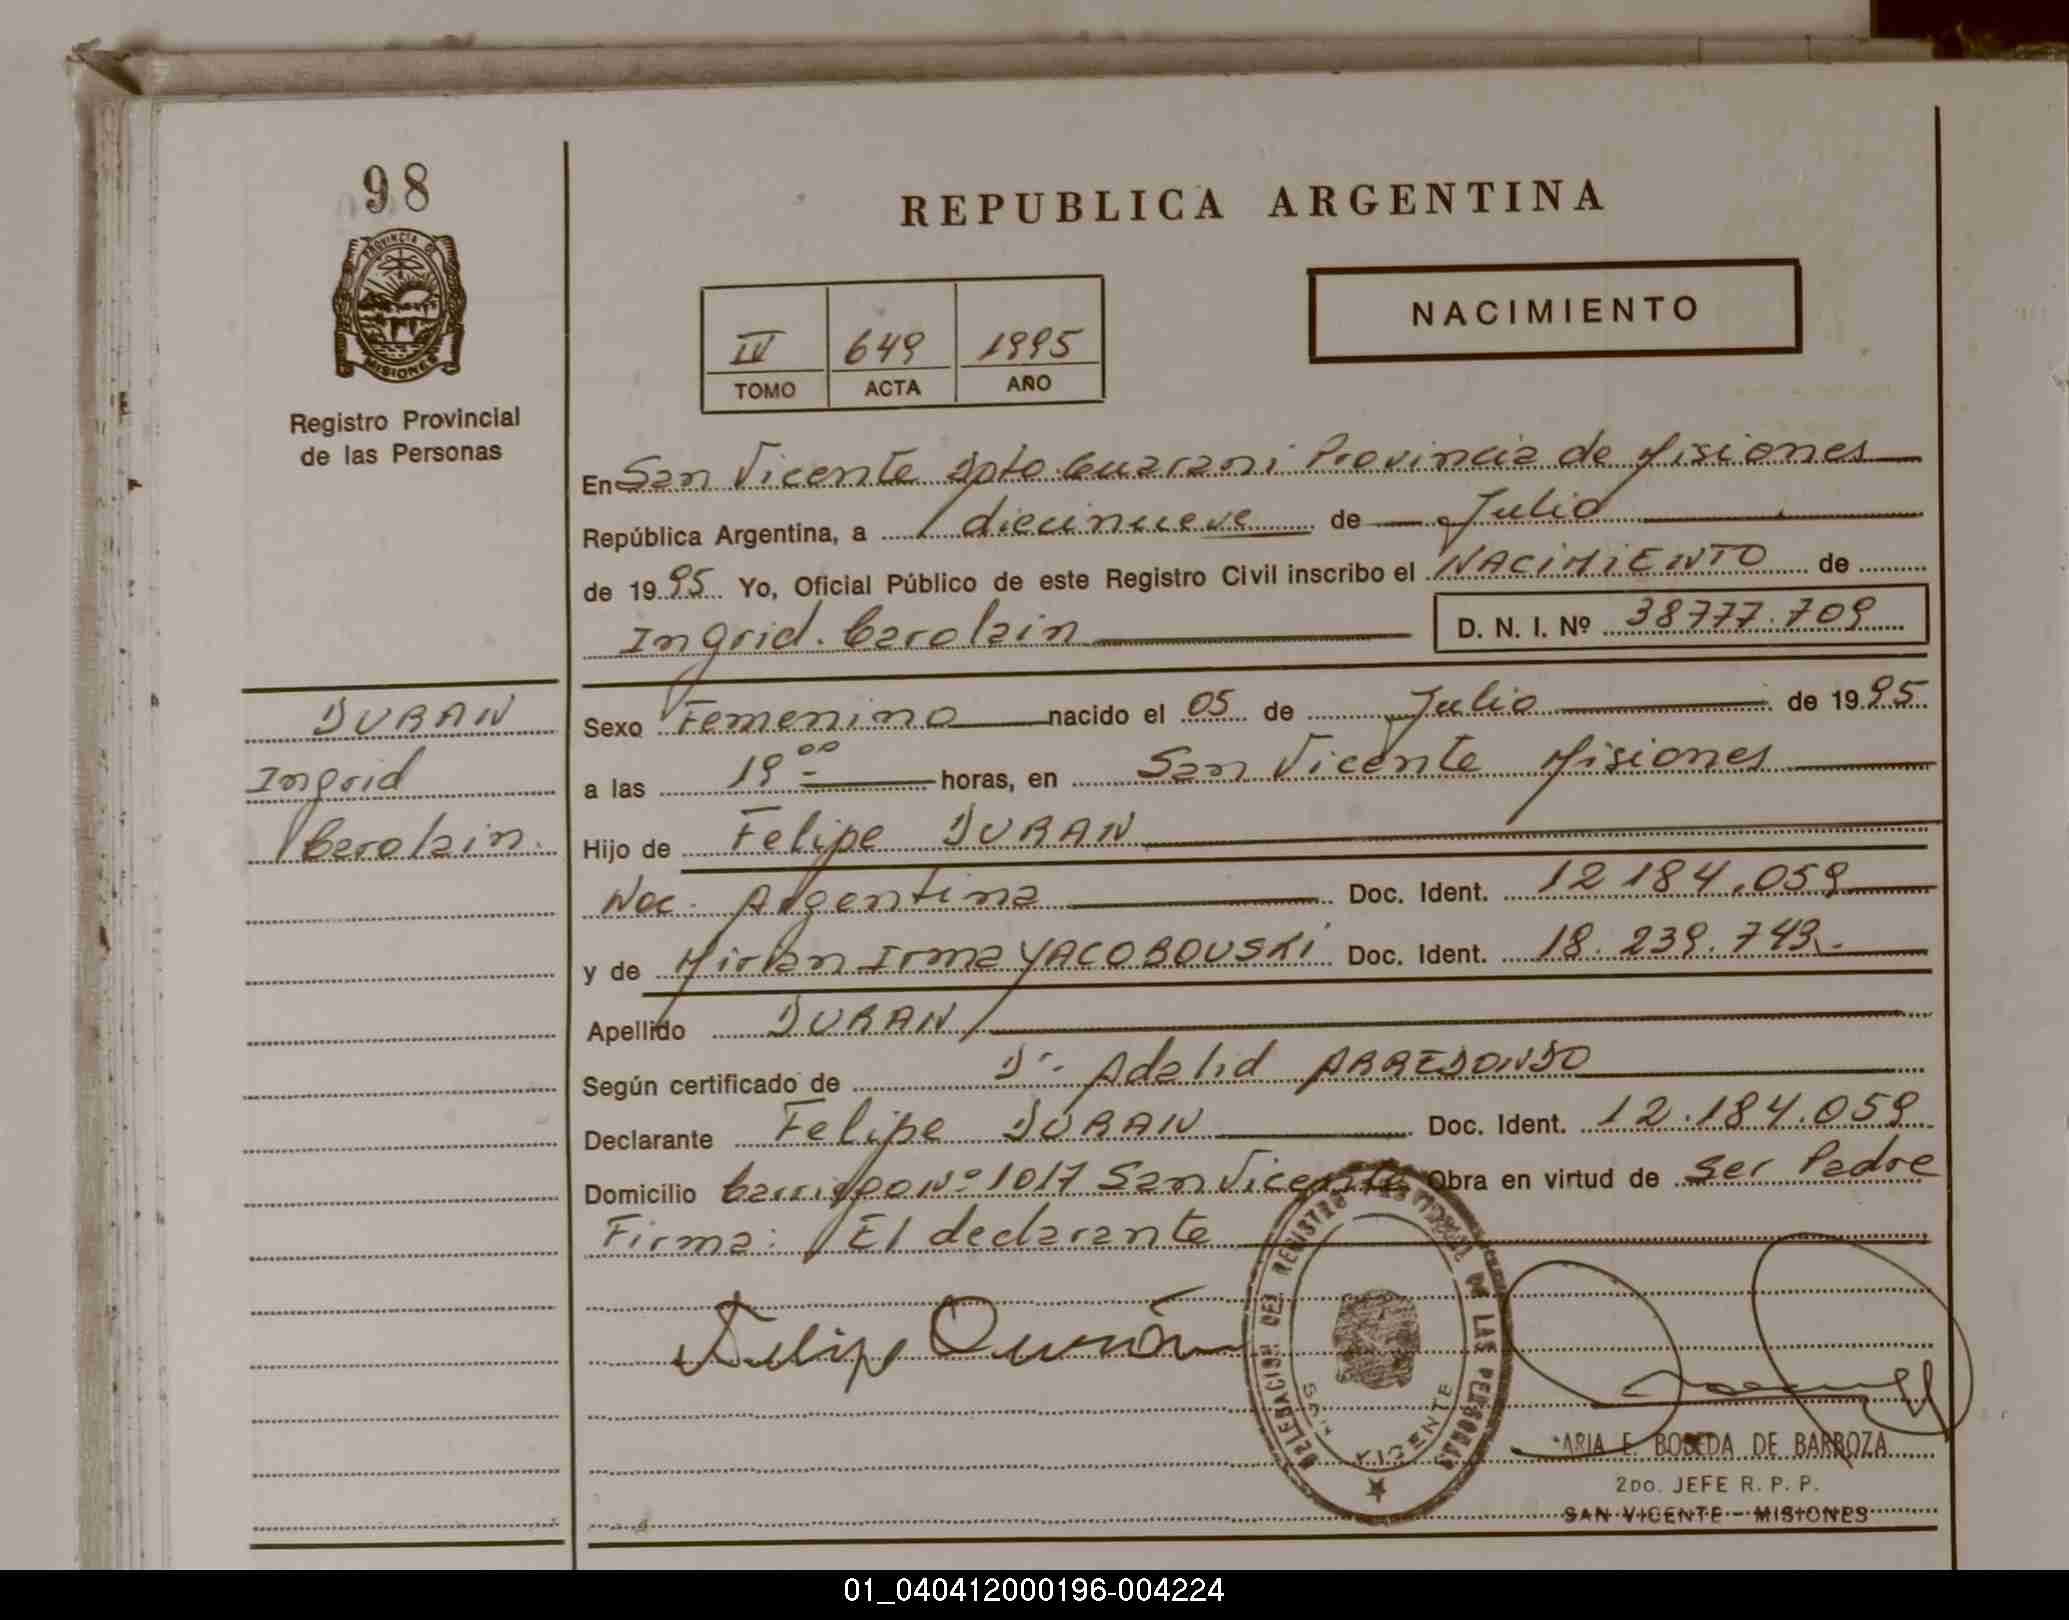 98
PROVINCIA DE
MISIONES
Registro Provincial
de las Personas
REPUBLICA ARGENTINA
NACIMIENTO
IV 649 1995
TOMO ACTA AÑO
En San Vicente Dpto. Guarani Provincia de Misiones
República Argentina, a diecinueve de Julio
de 1995 Yo, Oficial Público de este Registro Civil inscribo el NACIMIENTO de
Ingrid Carolain D. N. I. Nº 38777.709
DURAN
Ingrid
Carolain.
Sexo Femenino nacido el 05 de Julio de 1995
a las 19 00 horas, en San Vicente Misiones
Hijo de Felipe DURAN
Nac. Argentina Doc. Ident. 12 184.059
y de Mirian Irma YACOBOUSKI Doc. Ident. 18.239.749.
Apellido DURAN
Según certificado de Dr. Adalid ARREDONDO
Declarante Felipe DURAN Doc. Ident. 12.184.059
Domicilio Nº 1017 San Vicente Obra en virtud de ser Padre
Firma: El declarante
Felipe Durán
DELEGACION DEL REGISTRO PROVINCIAL DE LAS PERSONAS
SAN VICENTE
ARIA E. BOBEDA DE BARBOZA
2DO. JEFE R. P. P.
SAN VICENTE - MISIONES
01_040412000196-004224